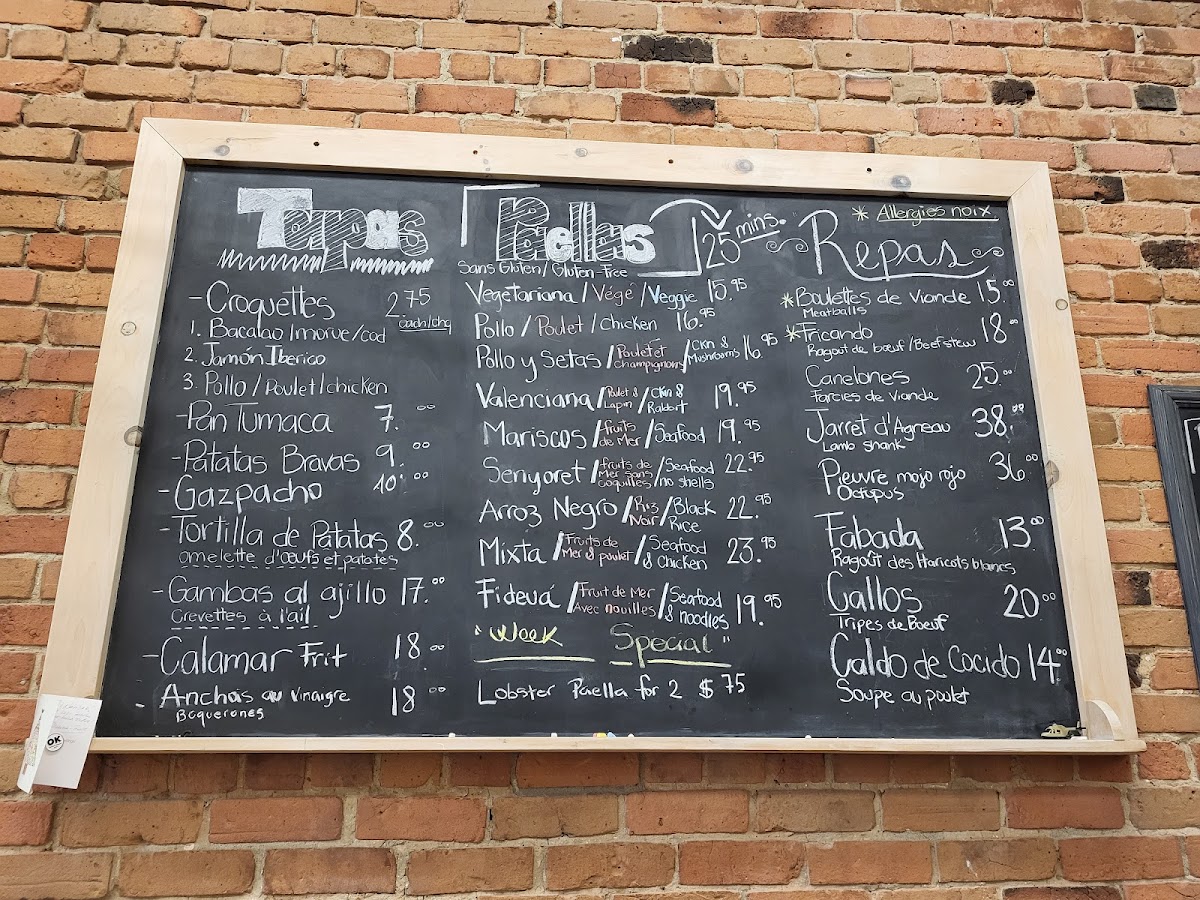 Tapas
- Croquettes 2.75
each/chq
1. Bacalao/morue/cod
2. Jamón Iberico
3. Pollo/Poulet/chicken
- Pan Tumaca 7.00
- Patatas Bravas 9.00
- Gazpacho 10.00
- Tortilla de Patatas 8.00
omelette d'œufs et patates
- Gambas al ajillo 17.00
Crevettes à l'ail
- Calamar Frit 18.00
- Anchas au vinaigre 18.00
Boquerones
Paellas 25 mins.
Sans Gluten/Gluten-Free
Vegetariana/Végé/Veggie 15.95
Pollo/Poulet/Chicken 16.95
Pollo y Setas/Poulet et Champignons/Ckn & Mushrooms 16.95
Valenciana/Poulet & Lapin/Ckn & Rabbit 19.95
Mariscos/fruits de Mer/Seafood 19.95
Senyoret/fruits de Mer sans coquilles/Seafood no shells 22.95
Arroz Negro/Riz Noir/Black Rice 22.95
Mixta/Fruits de Mer & poulet/Seafood & Chicken 23.95
Fidevá/Fruit de Mer Avec nouilles/Seafood & noodles 19.95
"Week Special"
Lobster Paella for 2 $75
* Allergies noix
Repas
* Boulettes de Viande 15.00
Meatballs
* Fricando 18.00
Ragout de bœuf/Beefstew
Canelones 25.00
Farcies de viande
Jarret d'Agneau 38.00
Lamb shank
Pieuvre mojo rojo 36.00
Octupus
Fabada 13.00
Ragoût des Haricots blancs
Callos 20.00
Tripes de Bœuf
Caldo de Cocido 14.00
Soupe au poulet
OK